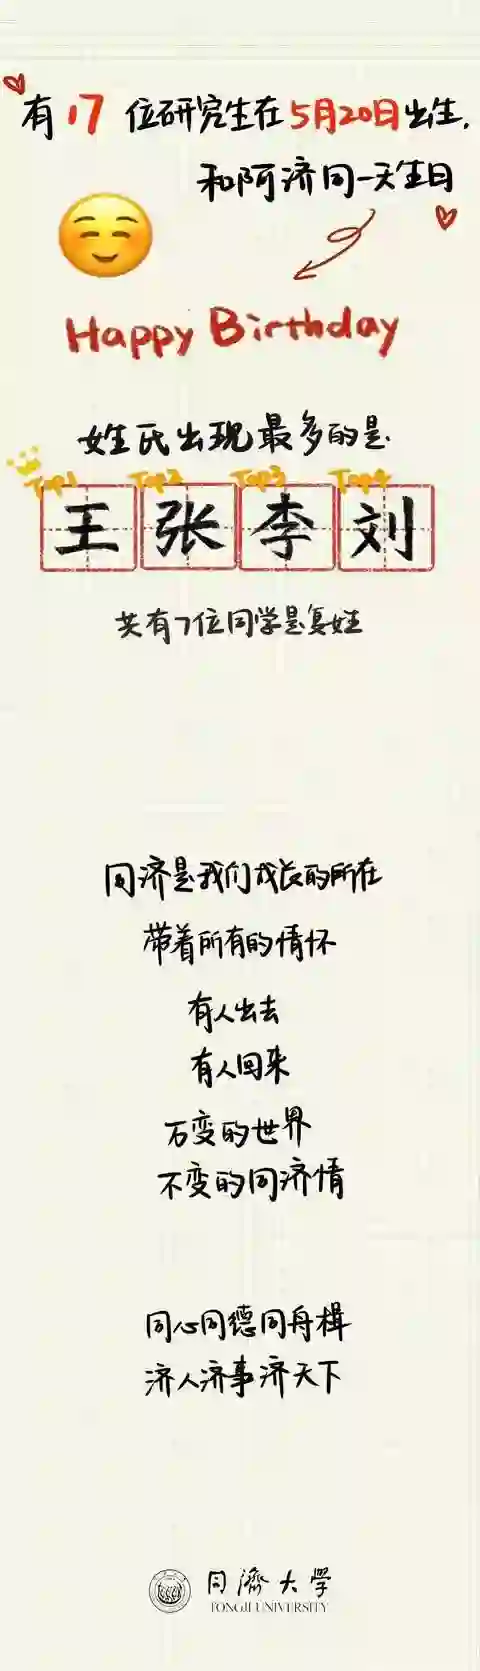 有17位研究生在5月20日出生,
和阿济同一天生日
Happy Birthday
姓氏出现最多的是
Top1 Top2 Top3 Top4
王张李刘
共有7位同学是复姓
同济是我们成长的所在
带着所有的情怀
有人出去
有人回来
万变的世界
不变的同济情
同心同德同舟楫
济人济事济天下
同濟大學
TONGJI UNIVERSITY